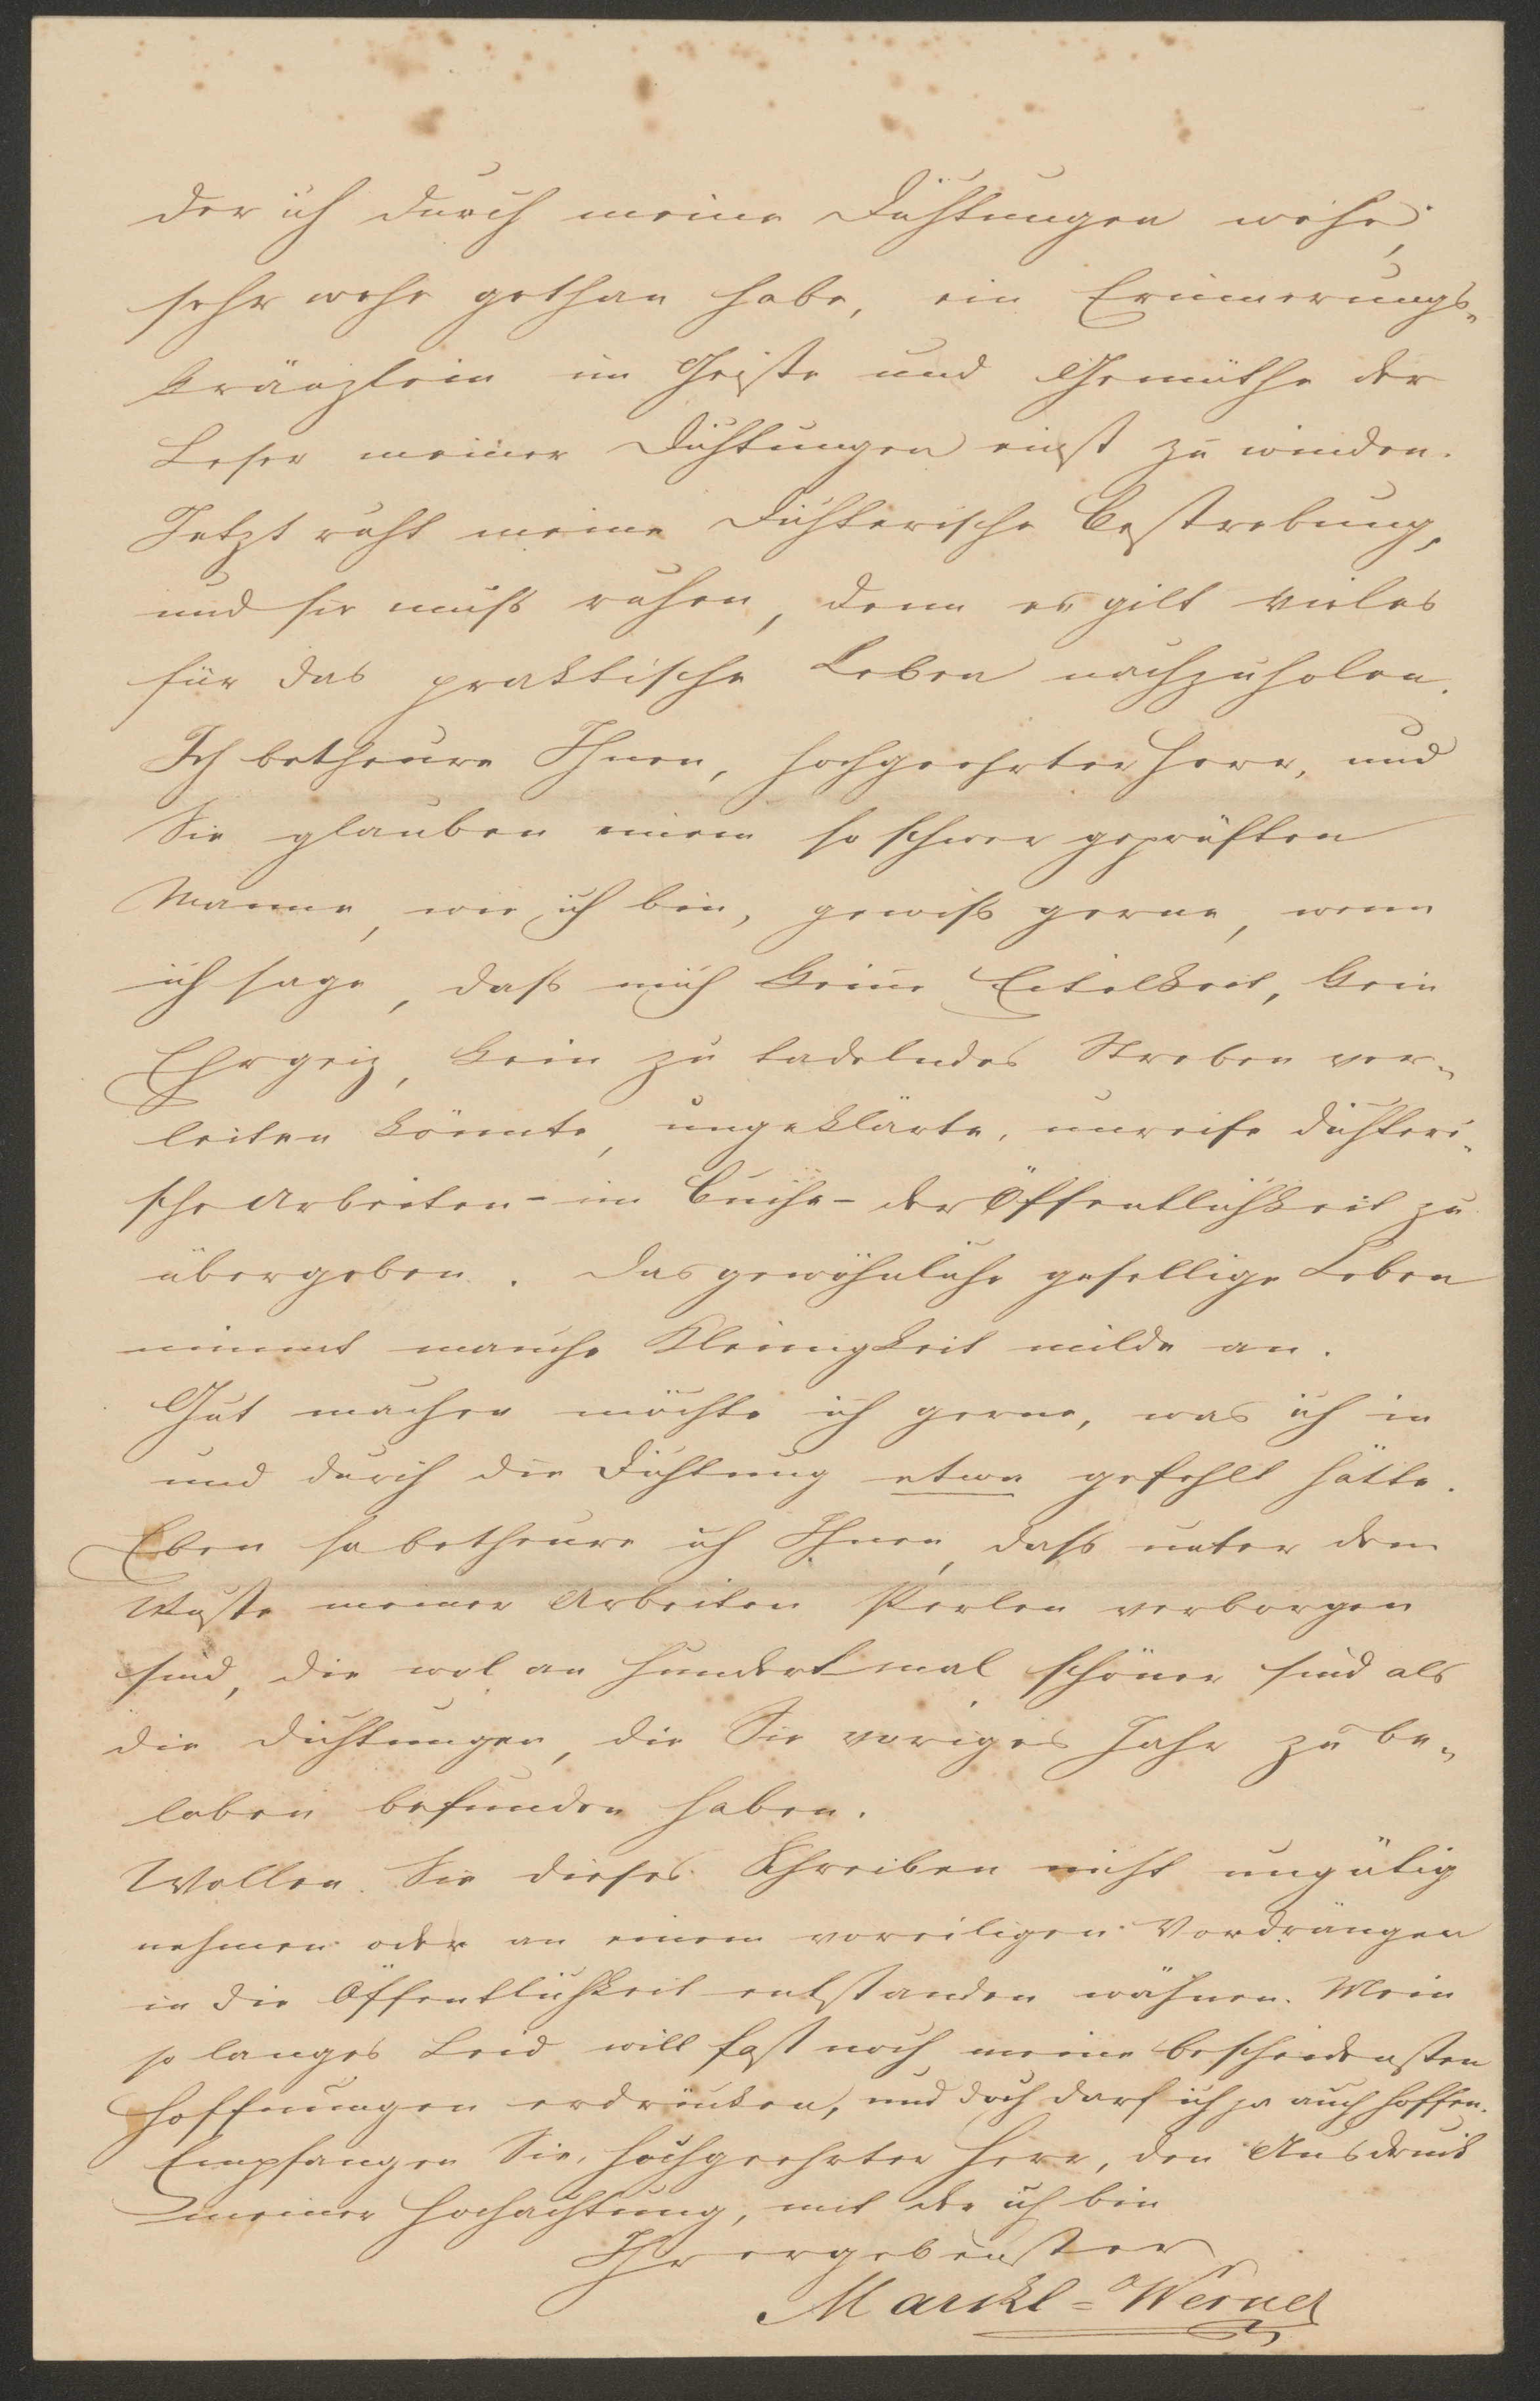 der ich durch meine Dichtungen wehe,
sehr wehe gethan habe, ein Erinnerungs-
kränzlein im Geiste und Gemüthe der
Leser meiner Dichtungen einst zu winden.
Jetzt ruht meine dichterische Bestrebung,
und sie muß ruhen, denn es gilt vieles
für das praktische Leben nachzuholen.
Ich betheure Ihnen, hochgeehrter Herr, und
Sie glauben einem so schwer geprüften
Manne, wie ich bin, gewiß gerne, wenn
ich sage, daß mich keine Eitelkeit, kein
Ehrgeiz, kein zu tadelndes Streben ver-
leiten könnte, ungeklärte, unreife dichteri-
sche Arbeiten - im Buche - der Öffentlichkeit zu
übergeben. Das gewöhnliche gesellige Leben
nimmt manche Kleinigkeit milde an.
Gut machen möchte ich gerne, was ich in
und durch die Dichtung etwa gefehlt hätte.
Eben so betheure ich Ihnen, daß unter dem
Wuste meiner Arbeiten Perlen verborgen
sind, die wol an hundertmal schöner sind als
die Dichtungen, die Sie voriges Jahr zu be-
loben befunden haben.
Wollen Sie dieses Schreiben nicht ungütig
nehmen oder an einem voreiligen Vordrängen
in die Öffentlichkeit entstanden wähnen. Mein
so langes Leid will fast noch meine bescheidensten
Hoffnungen erdrücken, und doch darf ich ja auch hoffen.
Empfangen Sie, hochgeehrter Herr, den Ausdruck
meiner Hochachtung, mit der ich bin
Ihr ergebenster
Marckl-Werner